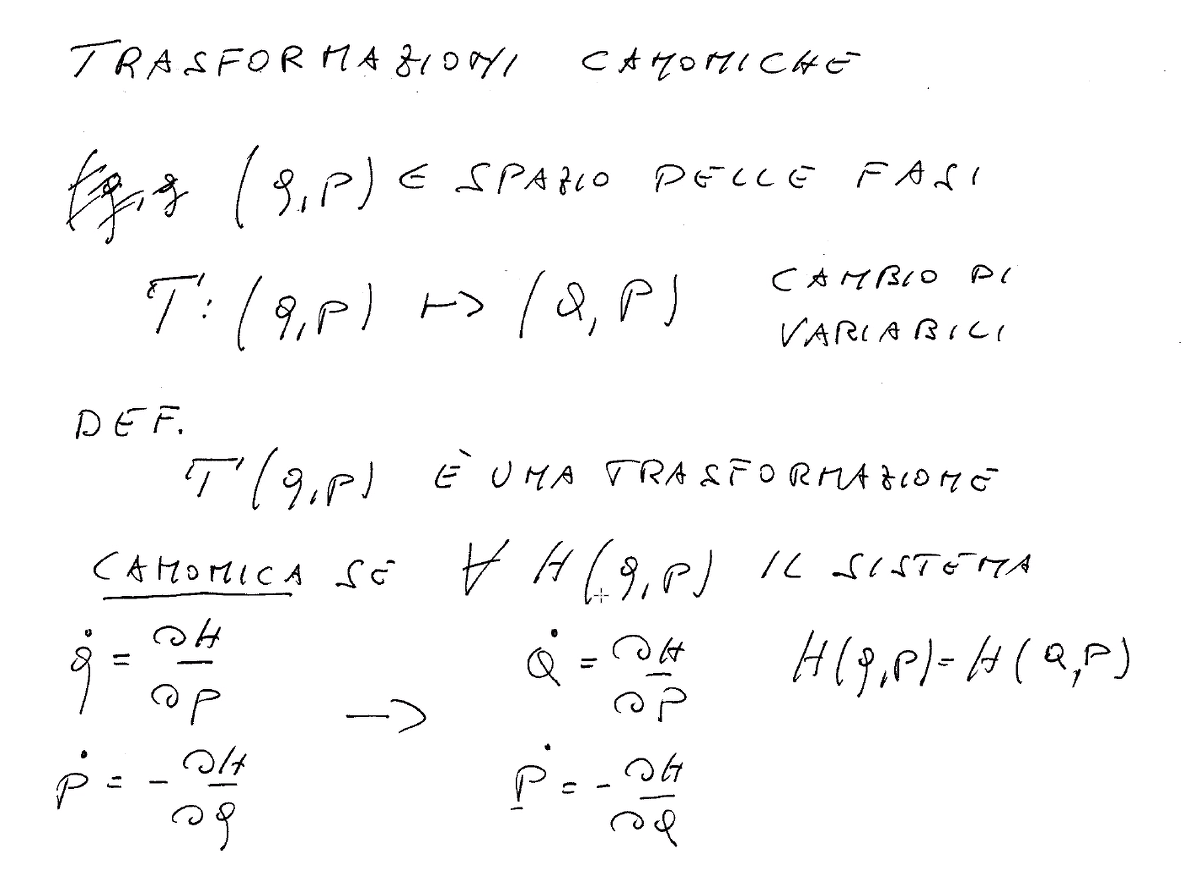 TRASFORMAZIONI CANONICHE
(q,p) ∈ SPAZIO DELLE FASI
T: (q,p) ↦ (Q,P) CAMBIO DI
VARIABILI
DEF.
T(q,p) È UNA TRASFORMAZIONE
CANONICA SE ∀ H(q,p) IL SISTEMA
q̇ = ∂H/∂p → Q̇ = ∂H/∂P H(q,p) = H(Q,P)
ṗ = -∂H/∂q Ṗ = -∂H/∂Q